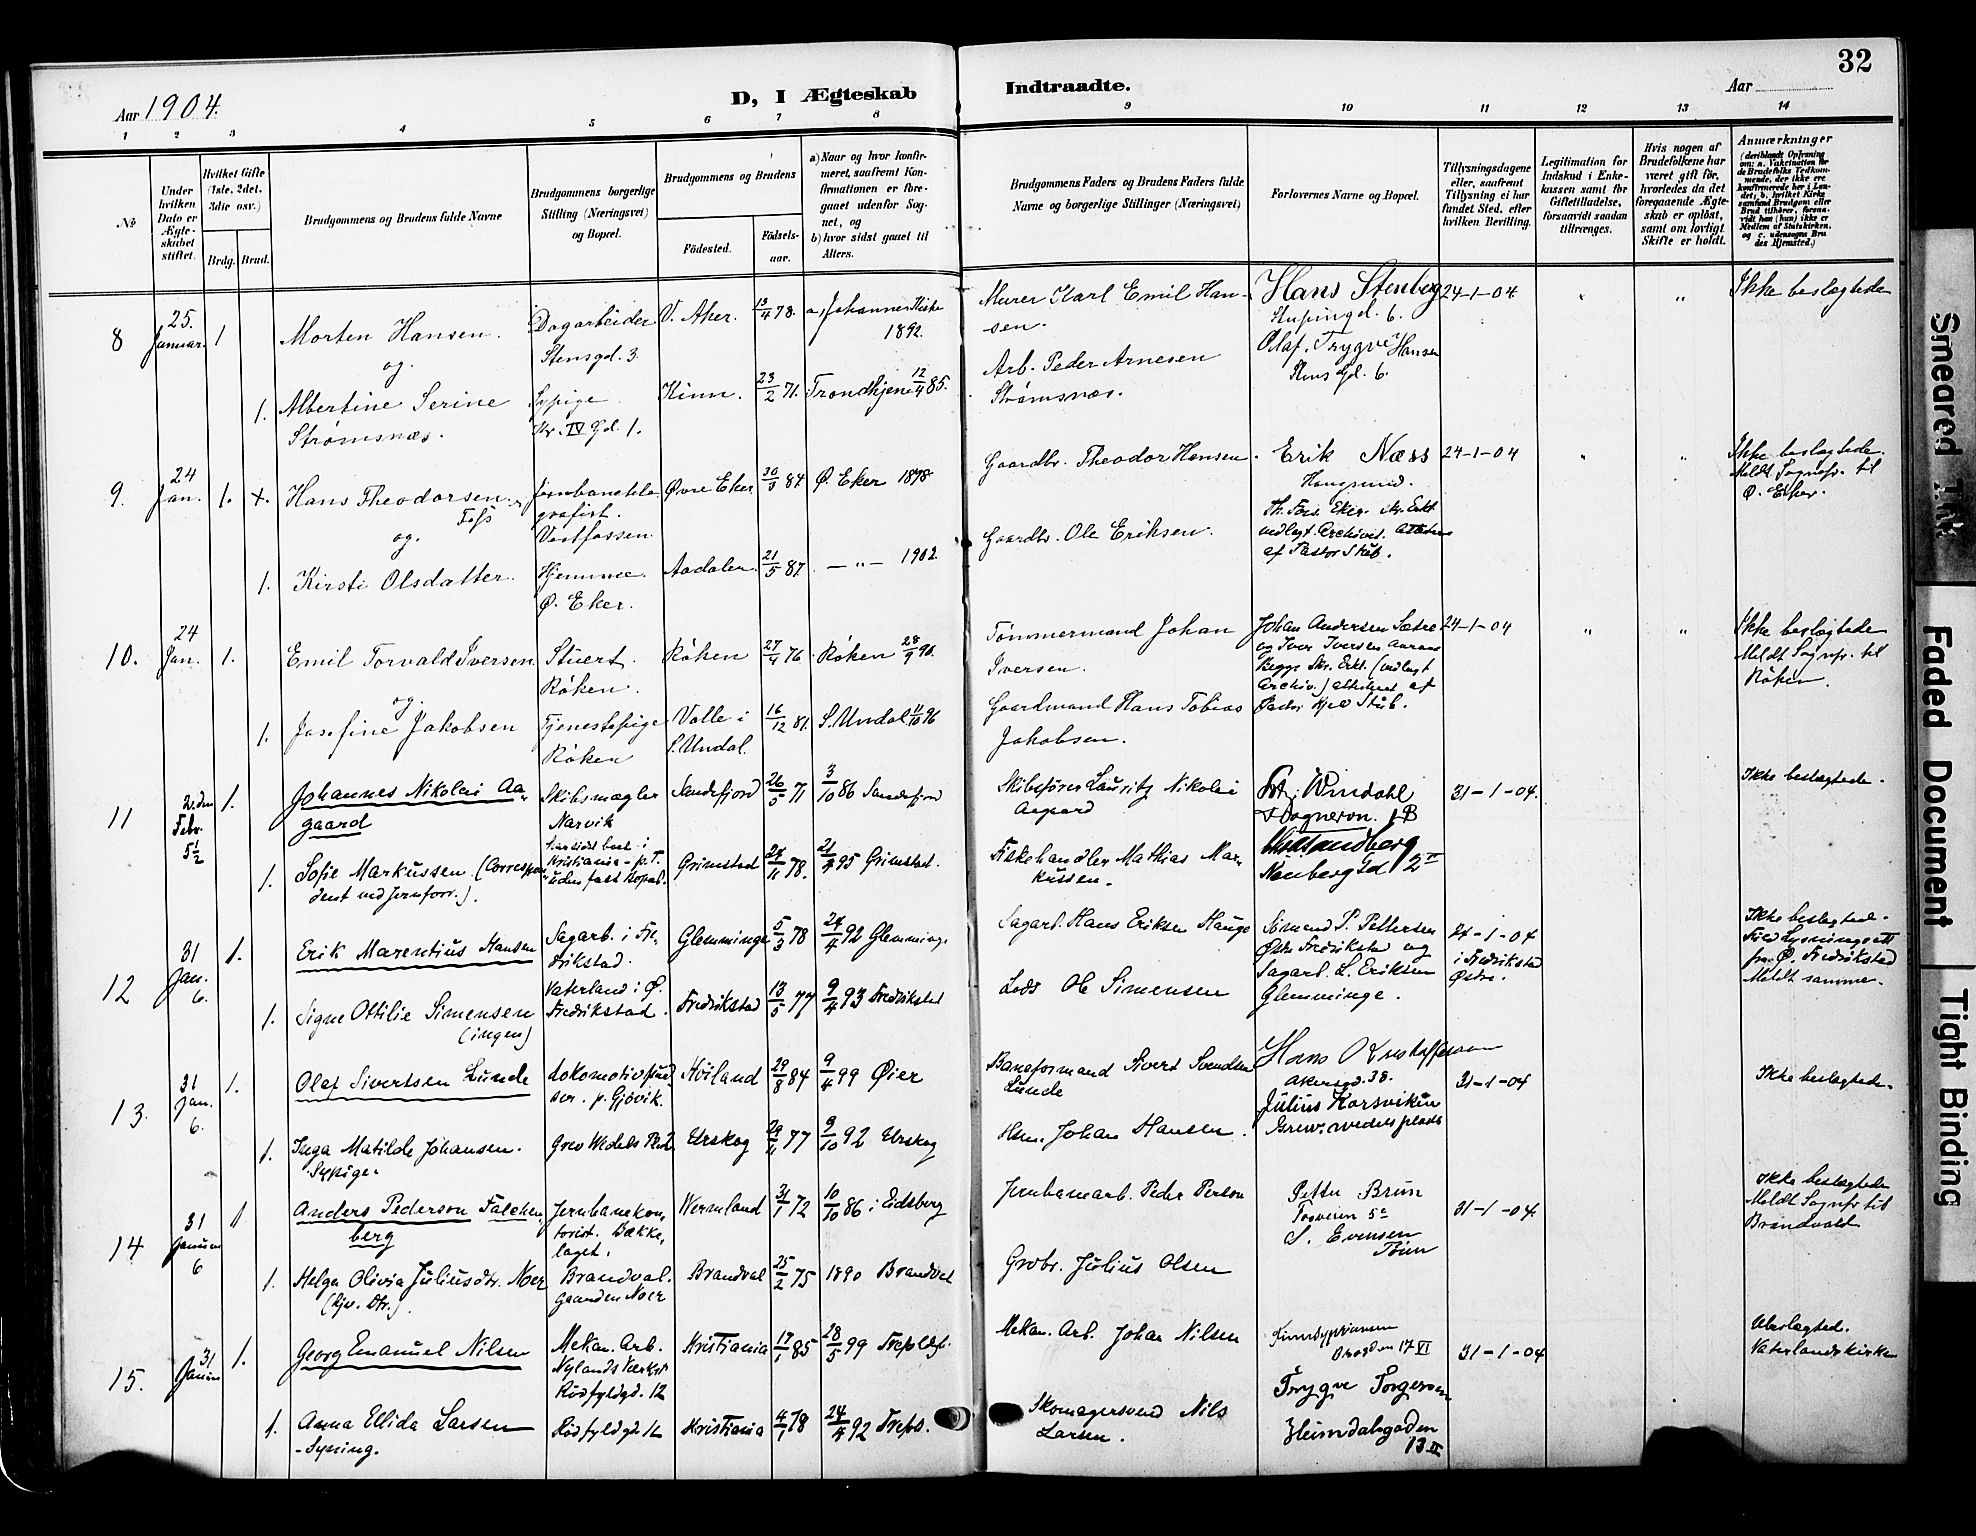 32
Aar 1904.
D, I Ægteskab Indtraadte.
Aar
1 2 3 4 5 6 7 8 9 10 11 12 13 14
No
Under hvilken Dato er Ægteskabet stiftet.
Hvilket Gifte (1ste, 2det, 3die osv.)
Brdg. Brud.
Brudgommens og Brudens fulde Navne
Brudgommens borgerlige Stilling (Næringsvei) og Bopæl.
Brudgommens og Brudens
Fødested.
Fødselsaar.
a) Naar og hvor konfirmeret, saafremt Konfirmationen er foregaaet udenfor Sognet, og
b) hvor sidst gaaet til Alters.
Brudgommens Faders og Brudens Faders fulde Navne og borgerlige Stillinger (Næringsvei)
Forlovernes Navne og Bopæl.
Tillysningsdagene eller, saafremt Tillysning ei har fundet Sted, efter hvilken Bevilling.
Legitimation for Indskud i Enkekassen samt for Giftetilladelse, forsaavidt saadan tiltrænges.
Hvis nogen af Brudefolkene har været gift før, hvorledes da det foregaaende Ægteskab er opløst, samt om lovligt Skifte er holdt.
Anmærkninger
8
25. Januar.
1
Morten Hansen.
og.
Dagarbeider
Stensgd. 3
V. Aker.
13/4 78.
a, Johannes Kirke
1892.
Murer Karl Emil Hansen.
Hans Stenberg
Olaf. Trygve Hansen
Stens Gd. 6.
24-1-04.
Ikke beslægtede
1. Albertine Serine
Strømsnæs.
Sypige
Kr. IV Gd. 1.
Kinn.
23/2 71.
Trondhjem 12/4 85.
Arb. Peder Arnesen
Strømsnæs.
9.
24 Jan.
1. +.
Hans Theodorsen
Foss
og.
Jernbanetelegrafist.
Vestfossen.
Øvre Eker
Ø. Eker 1898.
Gaardbr. Theodor Hansen.
Erik Næss
Hougsund.
24-1-04
Ikke beslægtede.
Meldt Sognepr. til
Ø. Eker.
1. Kirsti Olsdatter.
Hjemme.
Ø. Eker.
Aadalen.
21/5 87.
— „ — 1902.
Gaardbr. Ole Eriksen.
af Pastor Stub.
10.
24 Jan.
1.
Emil Torvald Iversen
og.
Stuert.
Røken.
Røken
27/4 76.
Røken 28/9 90.
Tømmermand Johan
Iversen.
Johan Andersen Sætre
og Iver Iversen Aaraas
Begge Skr. Erkl. (vedlagt
Archiv.) attesteret af
Pastor Kjel Stub.
24-1-04
Ikke beslægtede
Meldt Sognpr. til
Røken.
1. Josefine Jakobsen
Tjenestepige
Røken
Valle i
S. Undal.
16/12 81.
S. Undal 11/10 96
Gaardmand Hans Tobias
Jakobsen.
11
2den Febr. 5½
1.
Johannes Nikolai Aagaard
Skibsmægler
Narvik
Sandefjord
26/5 71
3/10 86 Sandefjord
Skibsfører Lauritz Nikolai
Aagaard
31-1-04.
Ikke beslægtede.
1. Sofie Markussen. (Correspondent ved Jernforr.).
Grimstad
78.
95 Grimstad.
Fiskehandler Mathias Markussen.
12
31 Jan. 6.
1.
Erik Marentius Hansen
Sagarb. i Fredrikstad.
Glemminge
5/3 78
24/4 92 Glemminge
Sagarb. Hans Eriksen Hauge
Simend P. Pettersen
Østre Fredrikstad og
Sagarb. L. Eriksen
Glemminge.
24-1-04
i Fredrikstad
Østre.
Ikke beslægtede.
Ifld Lysningsatt
fra Ø. Fredrikstad
Meldt samme.
1. Signe Ottilie Simensen
(ingen)
Vaterland i Ø.
Fredrikstad.
Fredrikstad
13/5 77
9/4 93 Fredrikstad
Lods Ole Simensen
13.
31 Jan. 6.
1.
Olaf Sivertsen Lunde
Lokomotivpudser. p. Gjøvik.
Høiland
29/8 84
9/4 99 Øier
Baneformand Sivert Svendsen
Lunde
Hans Kristoffersen
Akersgd. 38.
Julius Korsviken
Grev. wedels plads
31-1-04
Ikke beslægtede.
1. Inga Matilde Johansen.
Sypige.
Grev Wedels Pl. 2
Urskog
29/11 77
9/10 92 Urskog
Hsm. Johan Hansen.
14
31 Januar 6
1
Anders Pederson Falckenberg
Jernbanekontorist. Bækkelaget.
Wermland
31/1 72
10/10 86 i Eidsberg
Jernbanearb. Peder Person
Petter Brun
S. Evensen
31-1-04
Ikke beslægtede
Meldt Sognpr til
Brandvold
1. Helga Olivia Juliusdtr. Noer
(Gjv. Dtr.)
Brandval.
Gaarden Noer
Brandval
25/2 75
1890 Brandval
Grdbr. Julius Olsen
15.
31 Januar
1.
Georg Emanuel Nilsen
Mekan. Arb.
Nylands Værksted
Rødfyldgd. 12
Kristiania
17/1 85
28/5 99 Trefoldigh.
Mekan. Arb. Johan Nilsen
31-1-04
Ubeslægted.
Vaterlands kirke
1. Anna Elida Larsen
- Syning.
Rødfyldgd. 12
Kristiania
4/1 78
24/4 92 Trefold.
Skomagersvend Nils
Larsen.
Trygve Torgersen
Heimdalsgaden
13 II
Smeared Ink
Faded Document
Tight Binding